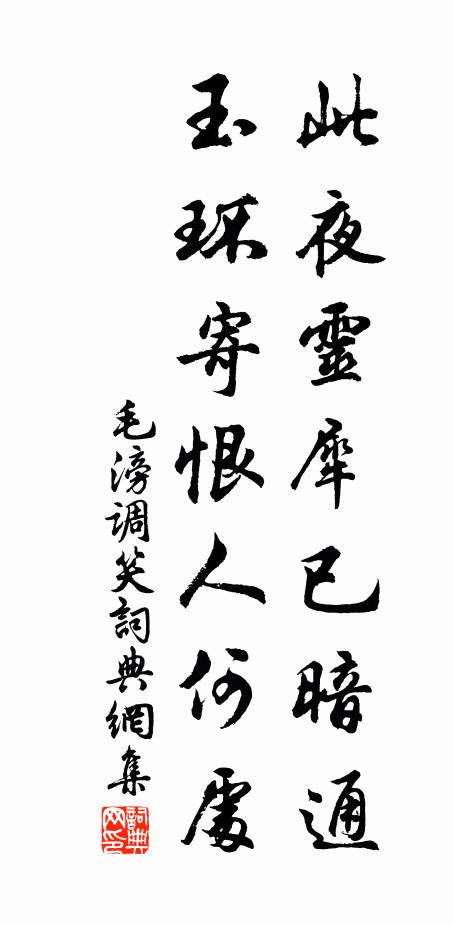 此夜靈犀已暗通
玉環寄恨人何處
毛滂調笑詞典網集
詞典網印